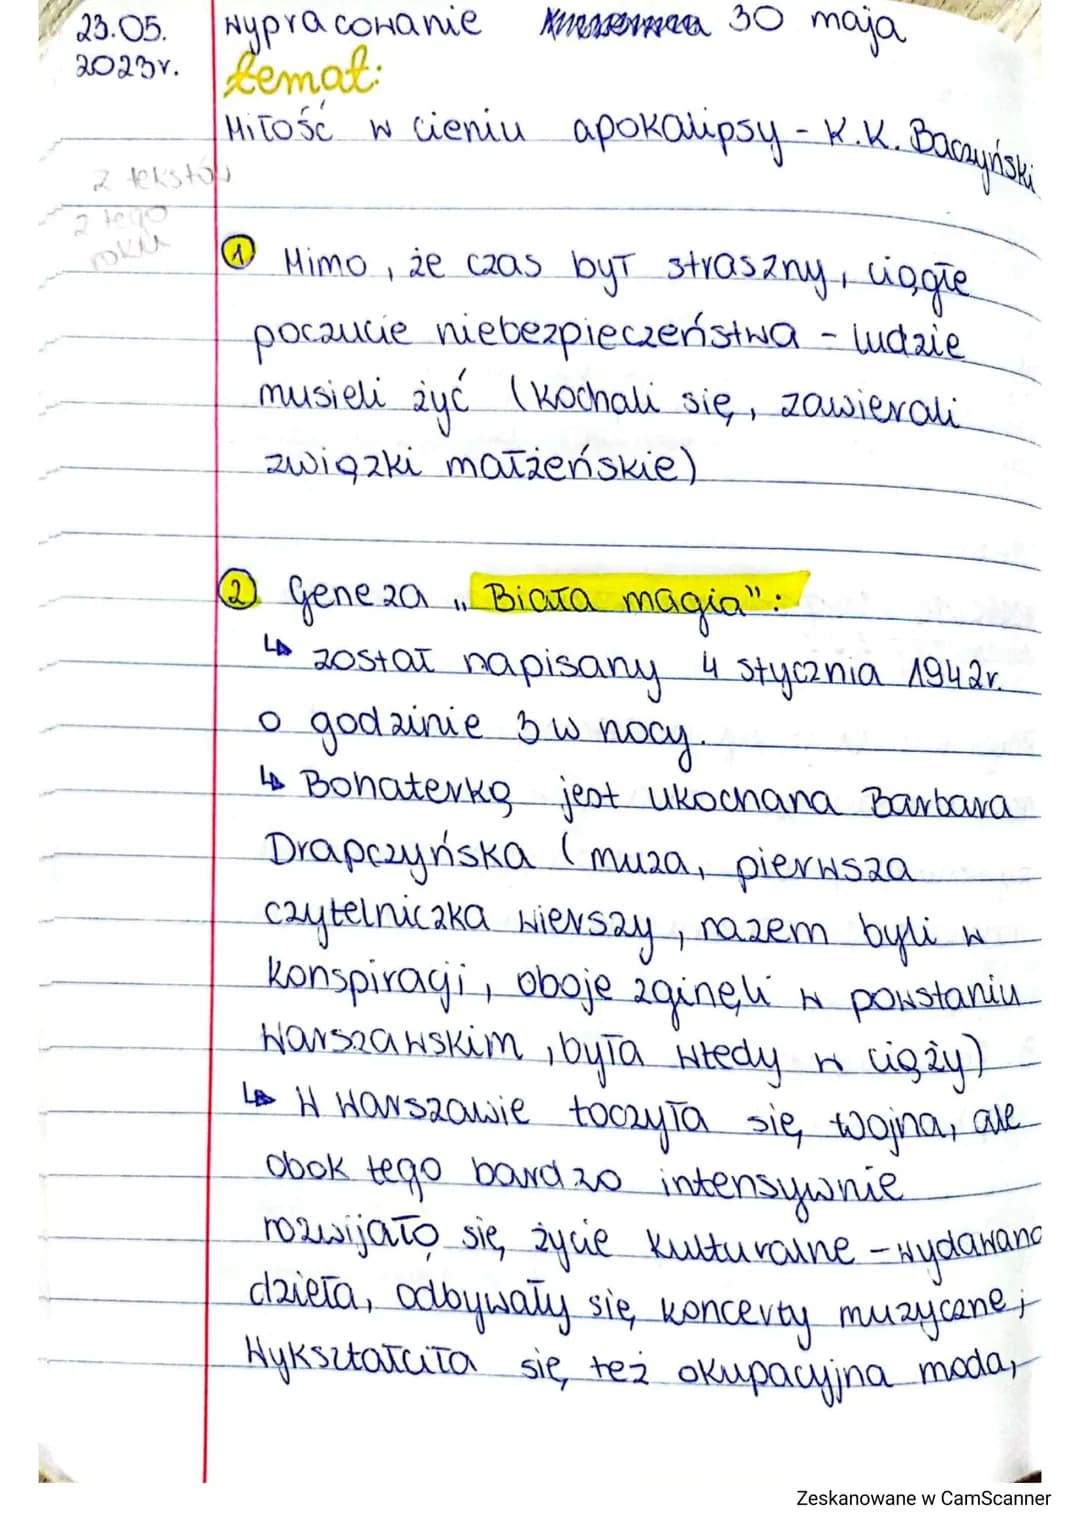 23.05. Wypracowanie 30 maja
2023r. temat:
Miłość w cieniu apokalipsy - K.K. Baczyński
2 tekstów
z tego
roku
① Mimo, że czas był straszny, ciągłe
poczucie niebezpieczeństwa - ludzie
musieli żyć (kochali się, zawierali
związki małżeńskie)
② Geneza „Biała magia":
↳ został napisany 4 stycznia 1942r.
o godzinie 3 w nocy.
↳ Bohaterką jest ukochana Barbara
Drapczyńska (muza, pierwsza
czytelniczka wierszy, razem byli w
konspiracji, oboje zginęli w powstaniu
Warszawskim, była wtedy w ciąży)
↳ W Warszawie toczyła się wojna, ale
obok tego bardzo intensywnie
rozwijało się życie kulturalne - wydawano
dzieła, odbywały się koncerty muzyczne;
Wykształciła się też okupacyjna moda,
Zeskanowane w CamScanner